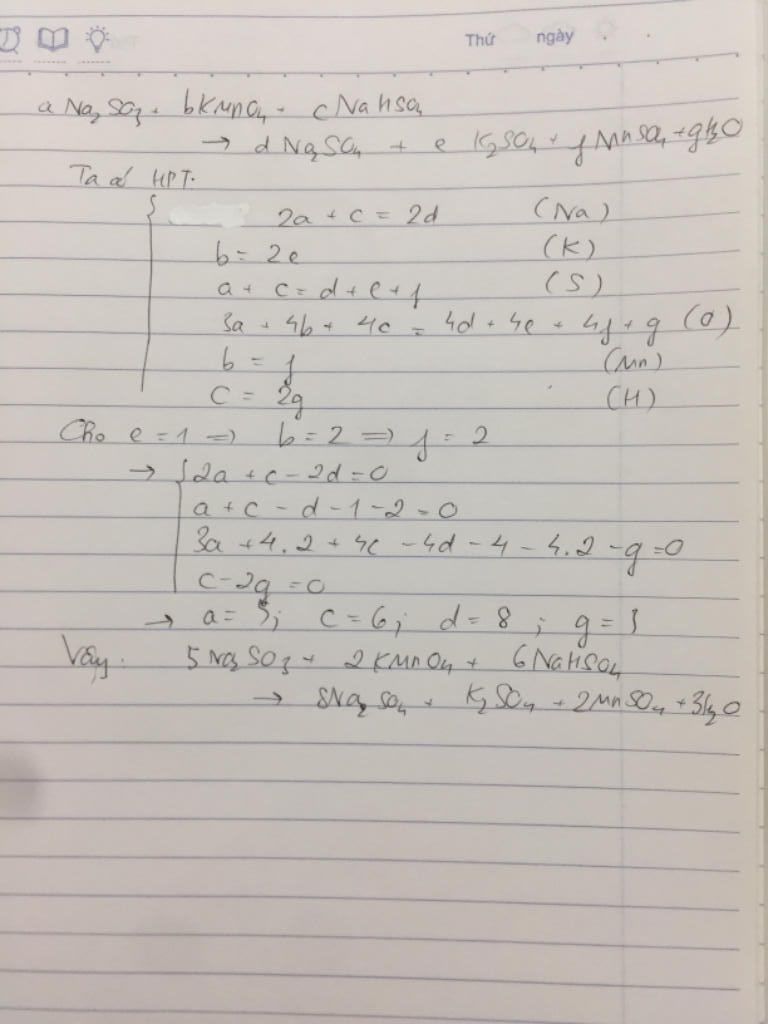 Thứ ngày
a Na₂SO₃ + bKMnO₄ + cNaHSO₄
→ d Na₂SO₄ + e K₂SO₄ + f MnSO₄ + gH₂O
Ta có HPT:
{ 2a + c = 2d (Na)
b = 2e (K)
a + c = d + e + f (S)
3a + 4b + 4c = 4d + 4e + 4f + g (O)
b = f (Mn)
C = 2g (H)
Cho e = 1 => b = 2 => f = 2
→ { 2a + c - 2d = 0
a + c - d - 1 - 2 = 0
3a + 4.2 + 4c - 4d - 4 - 4.2 - g = 0
c - 2g = 0
→ a = 5; c = 6; d = 8; g = 3
Vậy: 5Na₂SO₃ + 2KMnO₄ + 6NaHSO₄
→ 8Na₂SO₄ + K₂SO₄ + 2MnSO₄ + 3H₂O